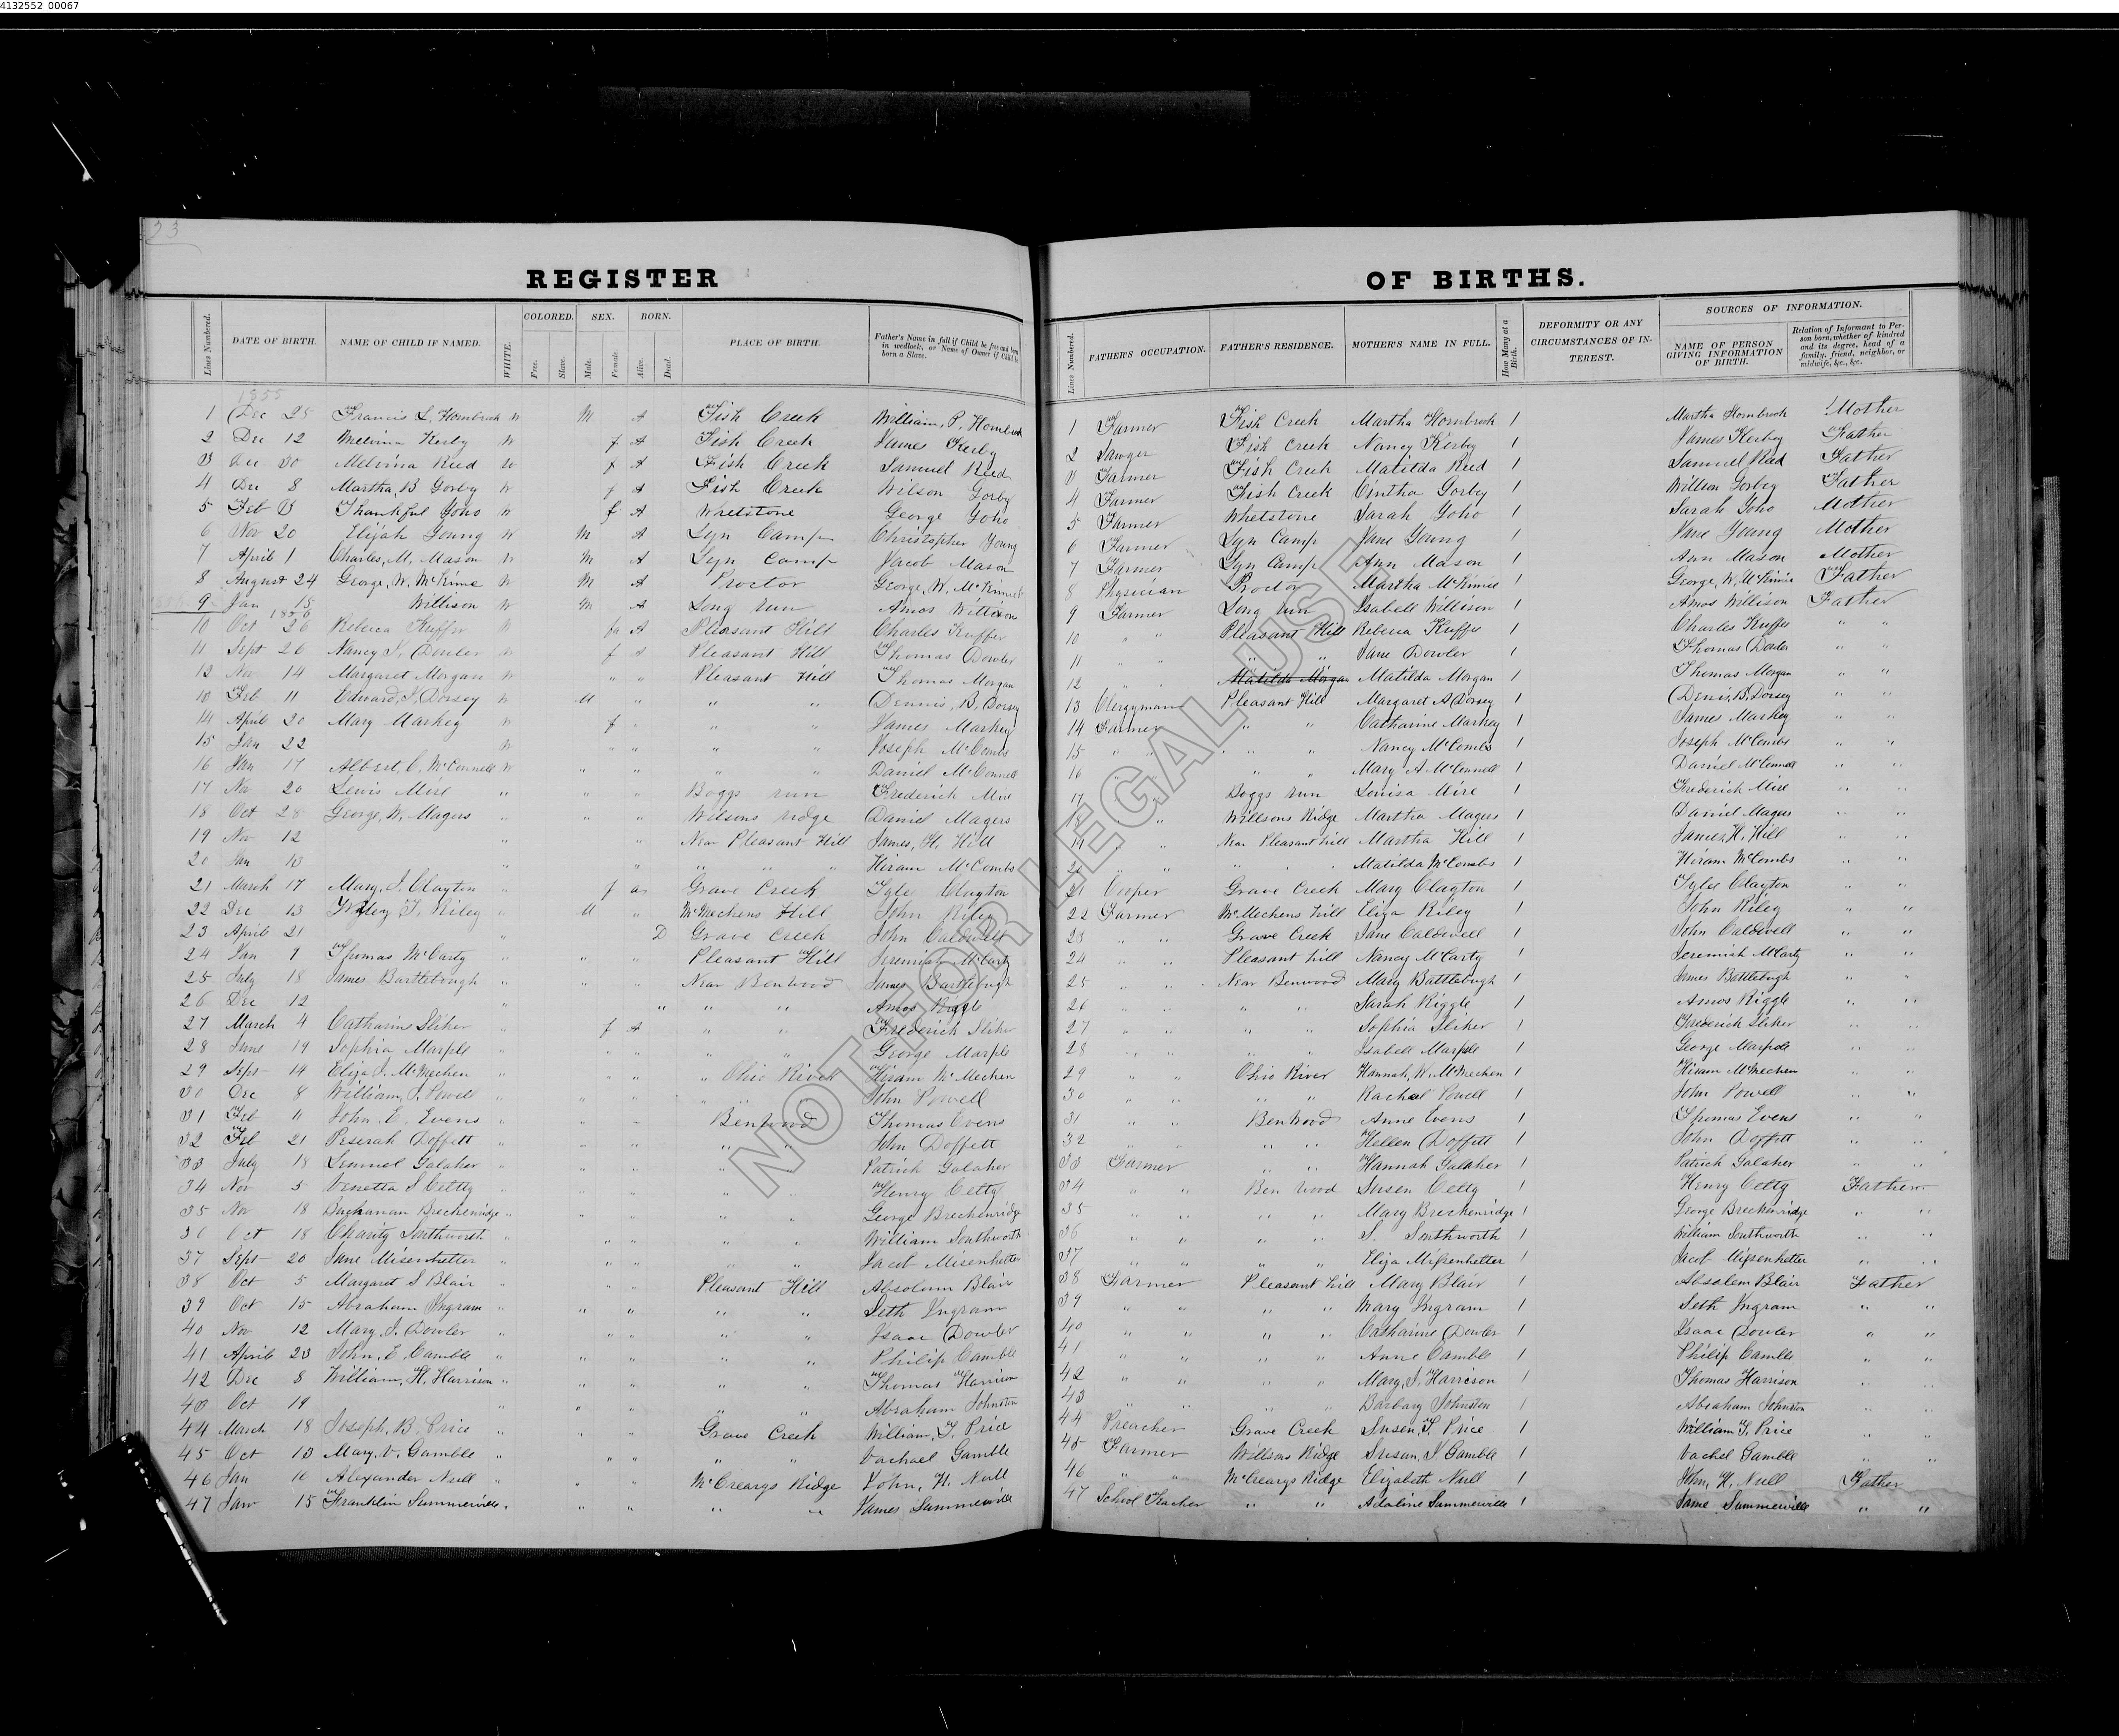 4132552_00067
33
REGISTER OF BIRTHS.
Lines Numbered. DATE OF BIRTH. NAME OF CHILD IF NAMED. WHITE. COLORED. Free. Slave. SEX. Male. Female. BORN. Alive. Dead. PLACE OF BIRTH. Father's Name in full if Child be free and born in wedlock, or Name of Owner if Child be born a Slave.
Lines Numbered. FATHER'S OCCUPATION. FATHER'S RESIDENCE. MOTHER'S NAME IN FULL. How Many at a Birth. DEFORMITY OR ANY CIRCUMSTANCES OF INTEREST. SOURCES OF INFORMATION. NAME OF PERSON GIVING INFORMATION OF BIRTH. Relation of Informant to Person born, whether of kindred and its degree, head of a family, friend, neighbor, or midwife, &c., &c.
1855
1 Dec 25 Francis L. Hornbrook W M A Fish Creek William, P. Hornbrook 1 Farmer Fish Creek Martha Hornbrook 1 Martha Hornbrook Mother
2 Dec 12 Melvina Kerby W f A Fish Creek James Kerby 2 Sawyer Fish Creek Nancy Kerby 1 James Kerby Father
3 Dec 30 Melvina Reed W f A Fish Creek Samuel Reed 3 Farmer Fish Creek Matilda Reed 1 Samuel Reed Father
4 Dec 8 Martha, B Gorby W f A Fish Creek Wilson Gorby 4 Farmer Fish Creek Cintha Gorby 1 Willson Gorby Father
5 Feb 3 Thankful Yoho W f A Whetstone George Yoho 5 Farmer Whetstone Sarah Yoho 1 Sarah Yoho Mother
6 Nov 20 Elijah Young W M A Lyn Camp Christopher Young 6 Farmer Lyn Camp Jane Young 1 Jane Young Mother
7 April 1 Charles, M, Mason W M A Lyn Camp Jacob Mason 7 Farmer Lyn Camp Ann Mason 1 Ann Mason Mother
8 August 24 George, W. McKimie W M A Proctor George, W. McKimie 8 Physician Proctor Martha McKimie 1 George, W, McKimie Father
9 Jan 15 Willison W M A Long run Amos Willison 9 Farmer Long run Isabell Willison 1 Amos Willison Father
1856
10 Oct 26 Rebeca Kuffer W fa A Pleasant Hill Charles Kuffer 10 " " Pleasant Hill Rebeca Kuffer 1 Charles Kuffer " "
11 Sept 26 Nancy J. Dowler W f A Pleasant Hill Thomas Dowler 11 " " " " Jane Dowler 1 Thomas Dowler " "
12 Nov 14 Margaret Morgan W " " Pleasant Hill Thomas Morgan 12 " " Matilda Morgan Matilda Morgan 1 Thomas Morgan " "
13 Feb 11 Edward, J, Dorsey W M " " " Dennis, B, Dorsey 13 Clergyman Pleasant Hill Margaret A Dorsey 1 Denis, B, Dorsey " "
14 April 20 Mary Markey W f " " " James Markey 14 Farmer " " Catharine Markey 1 James Markey " "
15 Jan 22 W " " " " Joseph McCombs 15 " " " " Nancy McCombs 1 Joseph McCombs " "
16 Jan 17 Albert, C. McConnell W " " " " Daniel McConnell 16 " " " " Mary A McConnell 1 Daniel McConnell " "
17 Nov 20 Lewis Mire " " " Boggs run Frederick Mire 17 " " Boggs run Louisa Mire 1 Frederick Mire " "
18 Oct 28 George, W. Magers " " " Wilsons ridge Daniel Magers 18 " " Willsons Ridge Martha Magers 1 Daniel Magers " "
19 Nov 12 " " Near Pleasant Hill James, H. Hill 19 " " Near Pleasant hill Martha Hill 1 James, H. Hill " "
20 Jan 13 " " " " " Hiram McCombs 20 " " " " Matilda McCombs 1 Hiram McCombs " "
21 March 17 Mary, J. Clayton " f a Grave Creek Tyler Clayton 21 Cooper Grave Creek Mary Clayton 1 Tyler Clayton " "
22 Dec 13 T. Riley " M " McMechens Hill John Riley 22 Farmer McMechens hill Eliza Riley 1 John Riley " "
23 April 21 " D Grave Creek John Caldwell 23 " " Grave Creek Jane Caldwell 1 John Caldwell " "
24 Jan 9 Thomas McCarty " " " Pleasant Hill Jeremiah McCarty 24 " " Pleasant hill Nancy McCarty 1 Jeremiah McCarty " "
25 July 18 James Bartlebough " " " Near Benwood James Bartlebugh 25 " " Near Benwood Mary Battlebugh 1 James Battlebugh " "
26 Dec 12 " " " " Amos Riggle 26 " " " " Sarah Riggle 1 Amos Riggle " "
27 March 4 Catharine Sliker " f A " " Frederick Sliker 27 " " " " Sophia Sliker 1 Frederick Sliker " "
28 June 19 Sophia Marple " " " " " George Marple 28 " " " " Isabell Marple 1 George Marple " "
29 Sept 14 Eliza J. McMechen " " " " Ohio River Hiram McMechen 29 " " Ohio River Hannah, R. McMechen 1 Hiram McMechen " "
30 Dec 8 William, J. Powell " " " " " John Powell 30 " " " " Rachel Powell 1 John Powell " "
31 Feb 11 John, E, Evens " " " Benwood Thomas Evens 31 " " Benwood Anne Evens 1 Thomas Evens " "
32 Feb 21 Doffett " " " " " John Doffett 32 " " " " Hellen Doffett 1 John Doffett " "
33 July 18 Lemuel Galaher " " " " " Patrick Galaher 33 Farmer " " Hannah Galaher 1 Patrick Galaher " "
34 Nov 5 Venetta S Cetty " " " " " Henry Cetty 34 " " Ben wood Susen Cetty 1 Henry Cetty Father
35 Nov 18 Buchanan Breckenridge " " " " " George Breckenridge 35 " " " " Mary Breckenridge 1 George Breckenridge " "
36 Oct 18 Charity Southworth " " " " " William Southworth 36 " " " " S. Southworth 1 William Southworth " "
37 Sept 20 Jane Misenhelter " " " " " Jacob Misenhelter 37 " " " " Eliza Missenhelter 1 Jacob Missenhelter " "
38 Oct 5 Margaret S Blair " " " Pleasant Hill Absolum Blair 38 Farmer Pleasant hill Mary Blair 1 Absolem Blair Father
39 Oct 15 Abraham Ingram " " " " " Seth Ingram 39 " " " " Mary Ingram 1 Seth Ingram " "
40 Nov 12 Mary, J. Dowler " " " " " Isaac Dowler 40 " " " " Catharine Dowler 1 Isaac Dowler " "
41 April 23 John, E, Camble " " " " " Philip Camble 41 " " " " Anne Camble 1 Philip Camble " "
42 Dec 8 William, H. Harrison " " " " " Thomas Harrison 42 " " " " Mary, J. Harrison 1 Thomas Harrison " "
43 Oct 19 " " " " " Abraham Johnston 43 " " " " Barbary Johnston 1 Abraham Johnston " "
44 March 18 Joseph, B. Price " " " Grave Creek William, T. Price 44 Preacher Grave Creek Susen, T. Price 1 William T. Price " "
45 Oct 13 Mary. V. Gamble " " " " " Vachael Gamble 45 Farmer Willsons Ridge Susan, J. Gamble 1 Vachel Gamble " "
46 Jan 10 Alexander Null " " " McCrearys Ridge John, H. Null 46 " " McCrearys Ridge Elizabeth Null 1 John, H. Null Father
47 Jan 15 Franklin Summerville " " " " " James Summerville 47 School Teacher " " Adaline Summerville 1 Jame Summerville " "
NOT FOR LEGAL USE